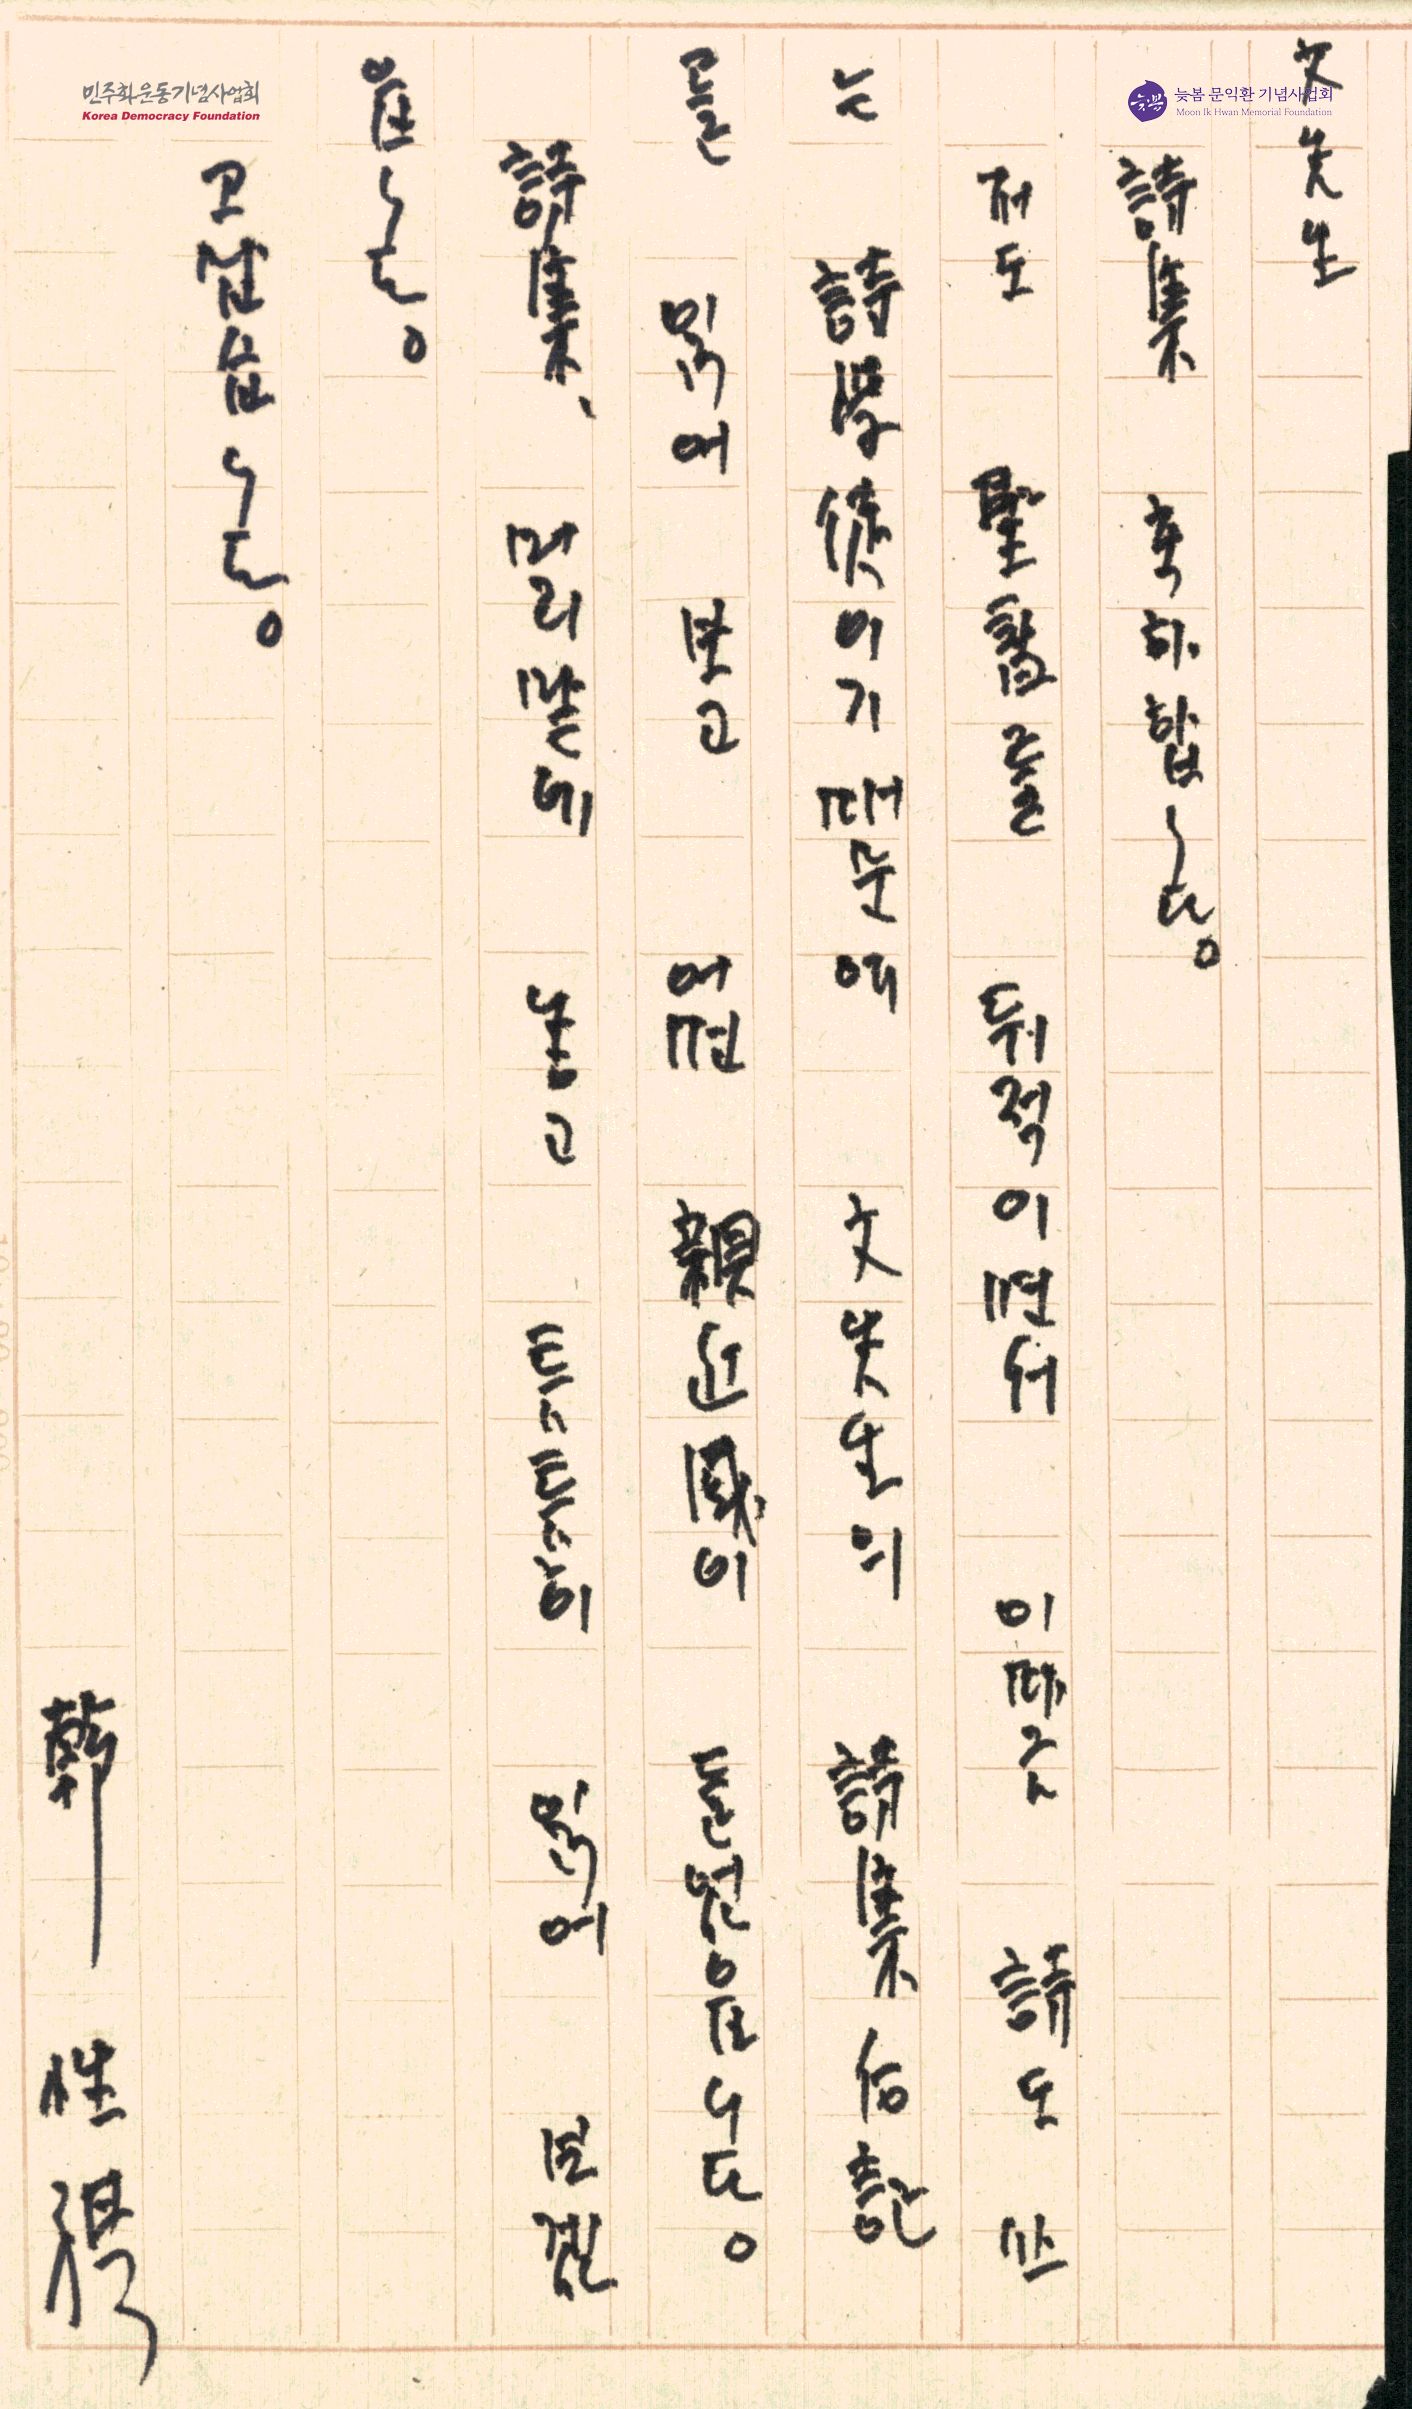 민주화운동기념사업회
Korea Democracy Foundation
늦봄
늦봄 문익환 기념사업회
Moon Ik Hwan Memorial Foundation
文先生
詩集 축하합니다。
저도 聖書를 뒤적이면서 이따금 詩도 쓰
는 詩學徒이기 때문에 文先生의 詩集 后記
를 읽어 보고 어떤 親近感이 들었읍니다。
詩集、 머리맡에 놓고 틈틈이 읽어 보겠
읍니다。
고맙습니다。
韓 性 祺